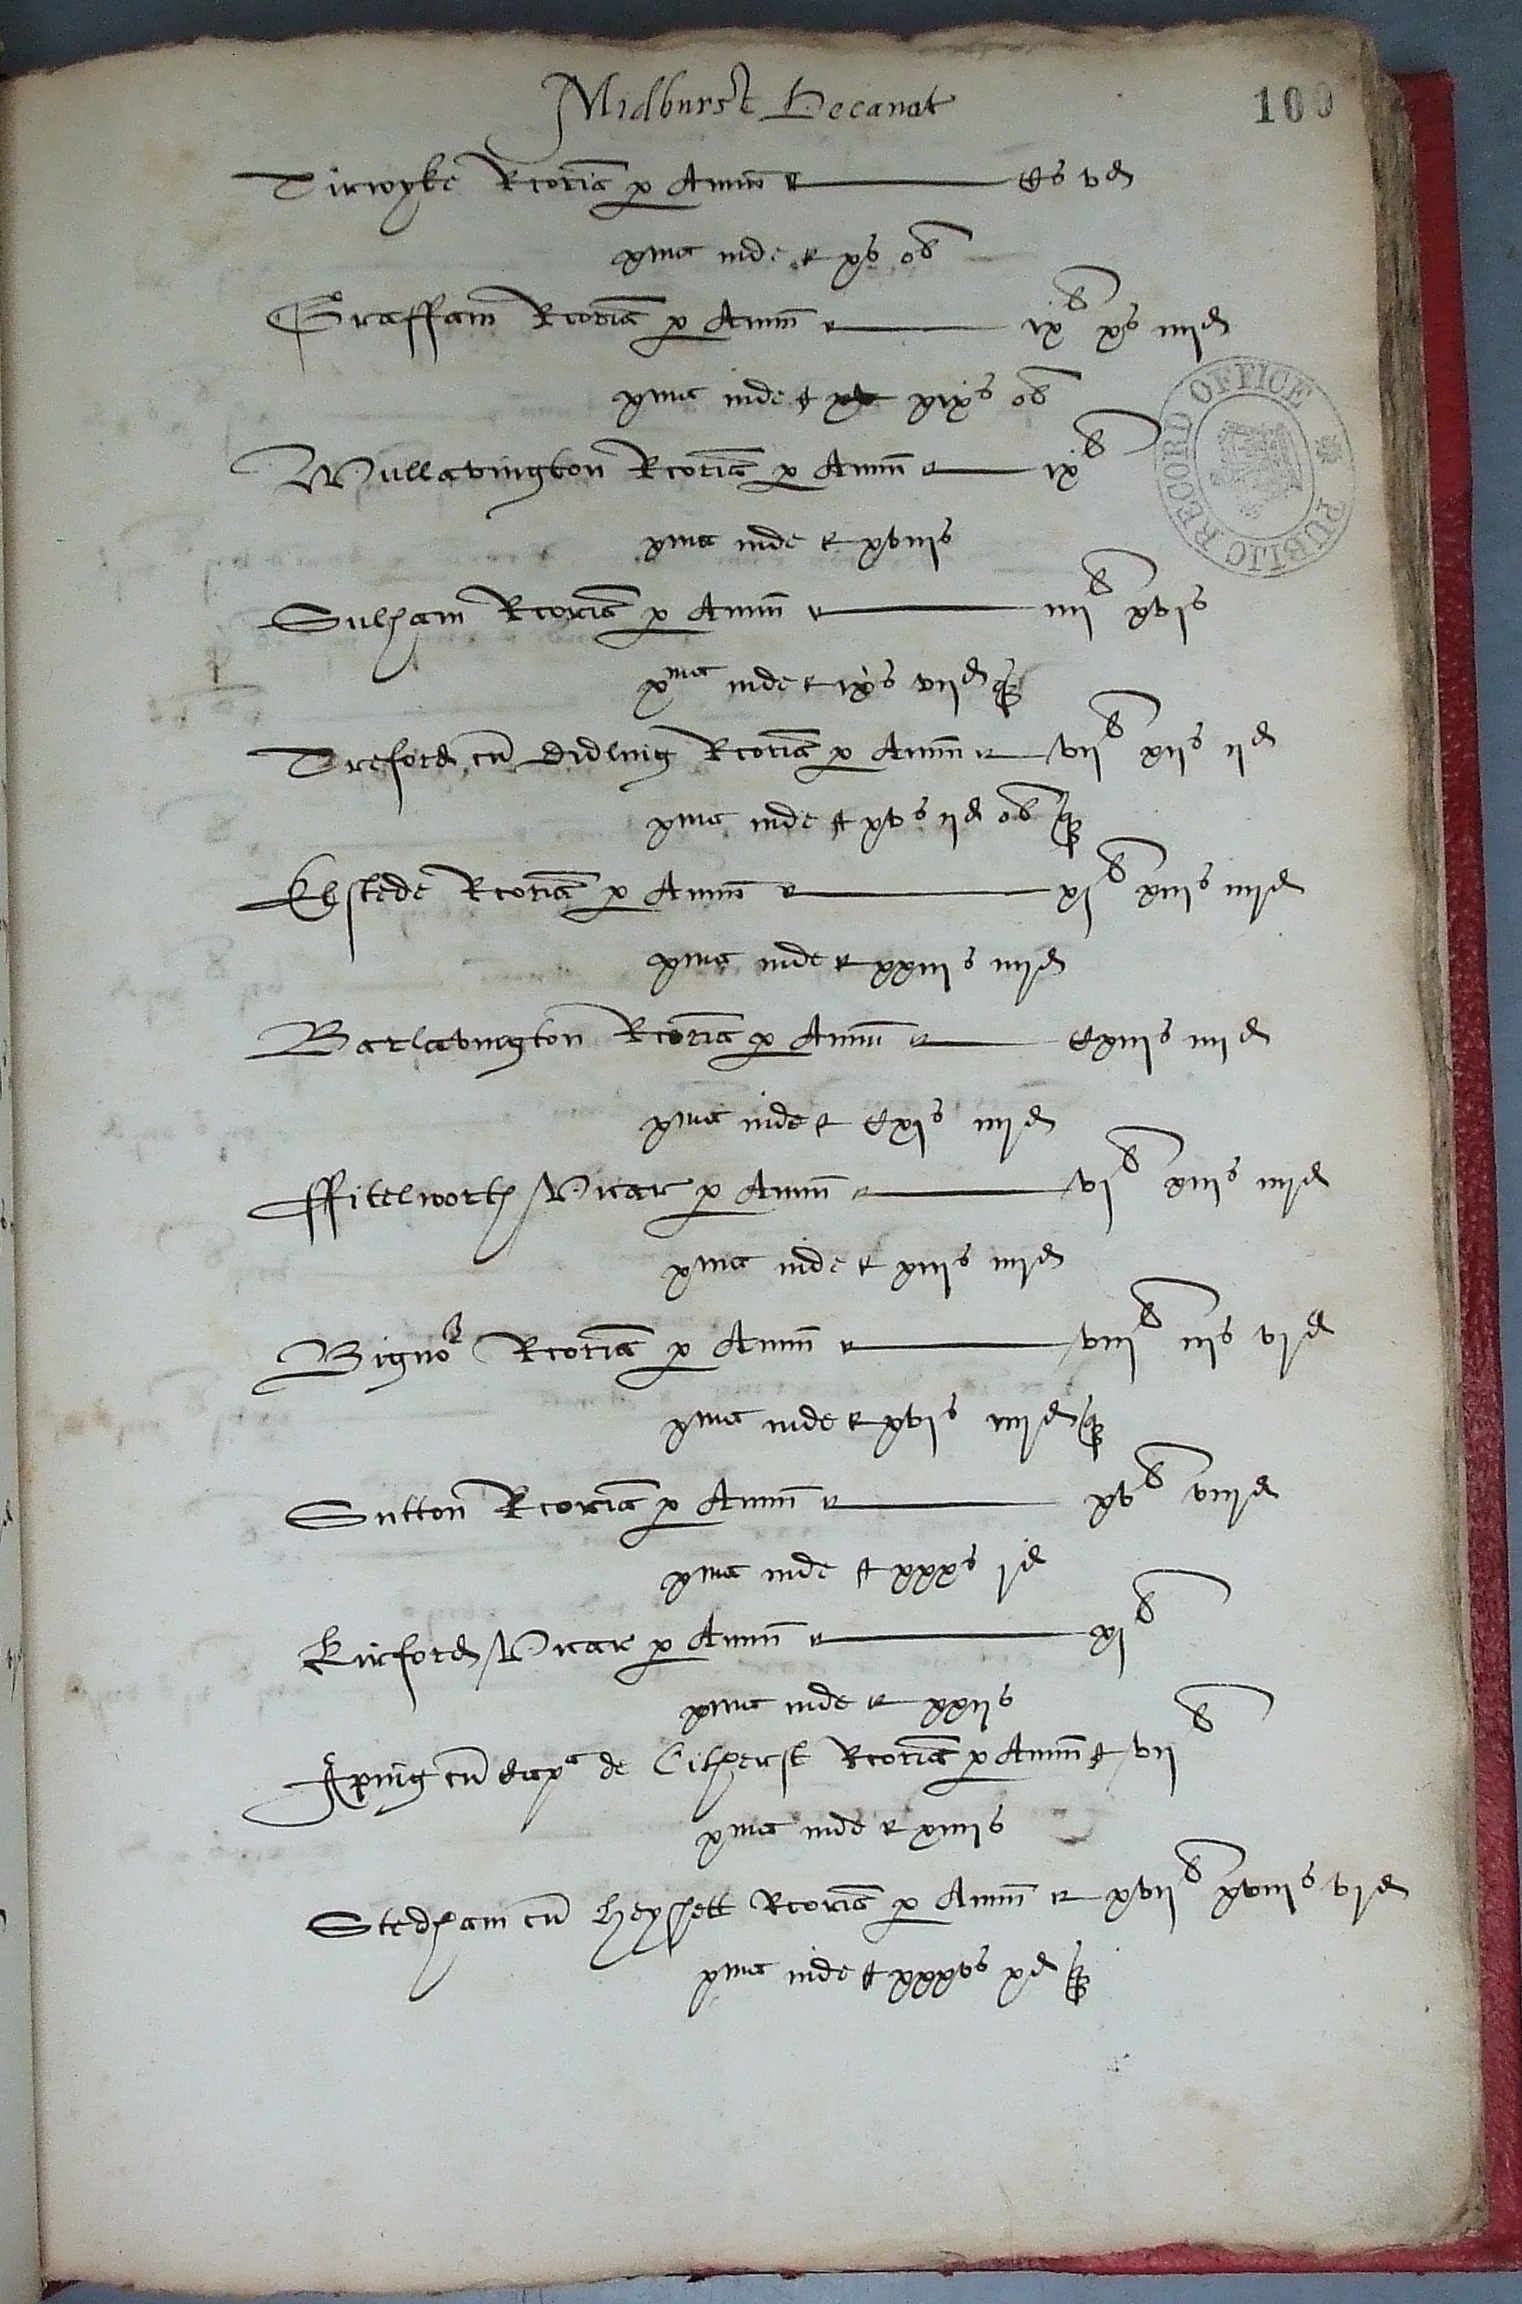 Midhurst Decanat
100
Tirwyke Rcoria p Annu — Cs vd
xma inde xs ob
Graffam Rcoria p Annu — ixli xs iiijd
xma inde xixs ob
Wullavington Rcoria p Annu — ixli
xma inde xviijs
Sulham Rcoria p Annu — iiijli xvjs
xma inde ixs vijd q
Treford cu Didling Rcoria p Annu — vijli xijs ijd
xma inde xvs ijd ob q
Elstede Rcoria p Annu — xjli xiijs iiijd
xma inde xxiijs iiijd
Barlavington Rcoria p Annu — Cxiijs iiijd
xma inde xjs iiijd
ffitelworth Vicar p Annu — vjli xiijs iiijd
xma inde xiijs iiijd
Bignor Rcoria p Annu — viijli iijs vjd
xma inde xvjs iiijd q
Sutton Rcoria p Annu — xvli viijd
xma inde xxxs jd
Kirford Vicar p Annu — xjli
xma inde xxijs
Iping cu capa de Cilherst Rcoria p Annu vijli
xma inde xiiijs
Stedham cu heyshett Rcoria p Annu xvijli xviijs vjd
xma inde xxxvs xd q
PUBLIC RECORD OFFICE